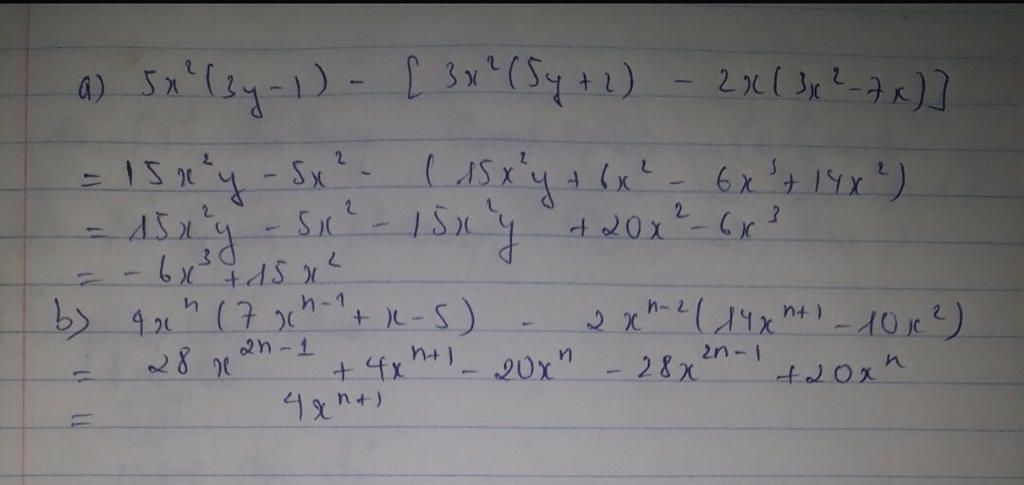 a) 5x²(3y-1) - [3x²(5y+2) - 2x(3x²-7x)]
= 15x²y - 5x² - (15x²y + 6x² - 6x³ + 14x²)
= 15x²y - 5x² - 15x²y + 20x² - 6x³
= -6x³ + 15x²
b) 4xⁿ(7xⁿ⁻¹ + x - 5) - 2xⁿ⁻²(14xⁿ⁺¹ - 10x²)
= 28x²ⁿ⁻¹ + 4xⁿ⁺¹ - 20xⁿ - 28x²ⁿ⁻¹ + 20xⁿ
= 4xⁿ⁺¹